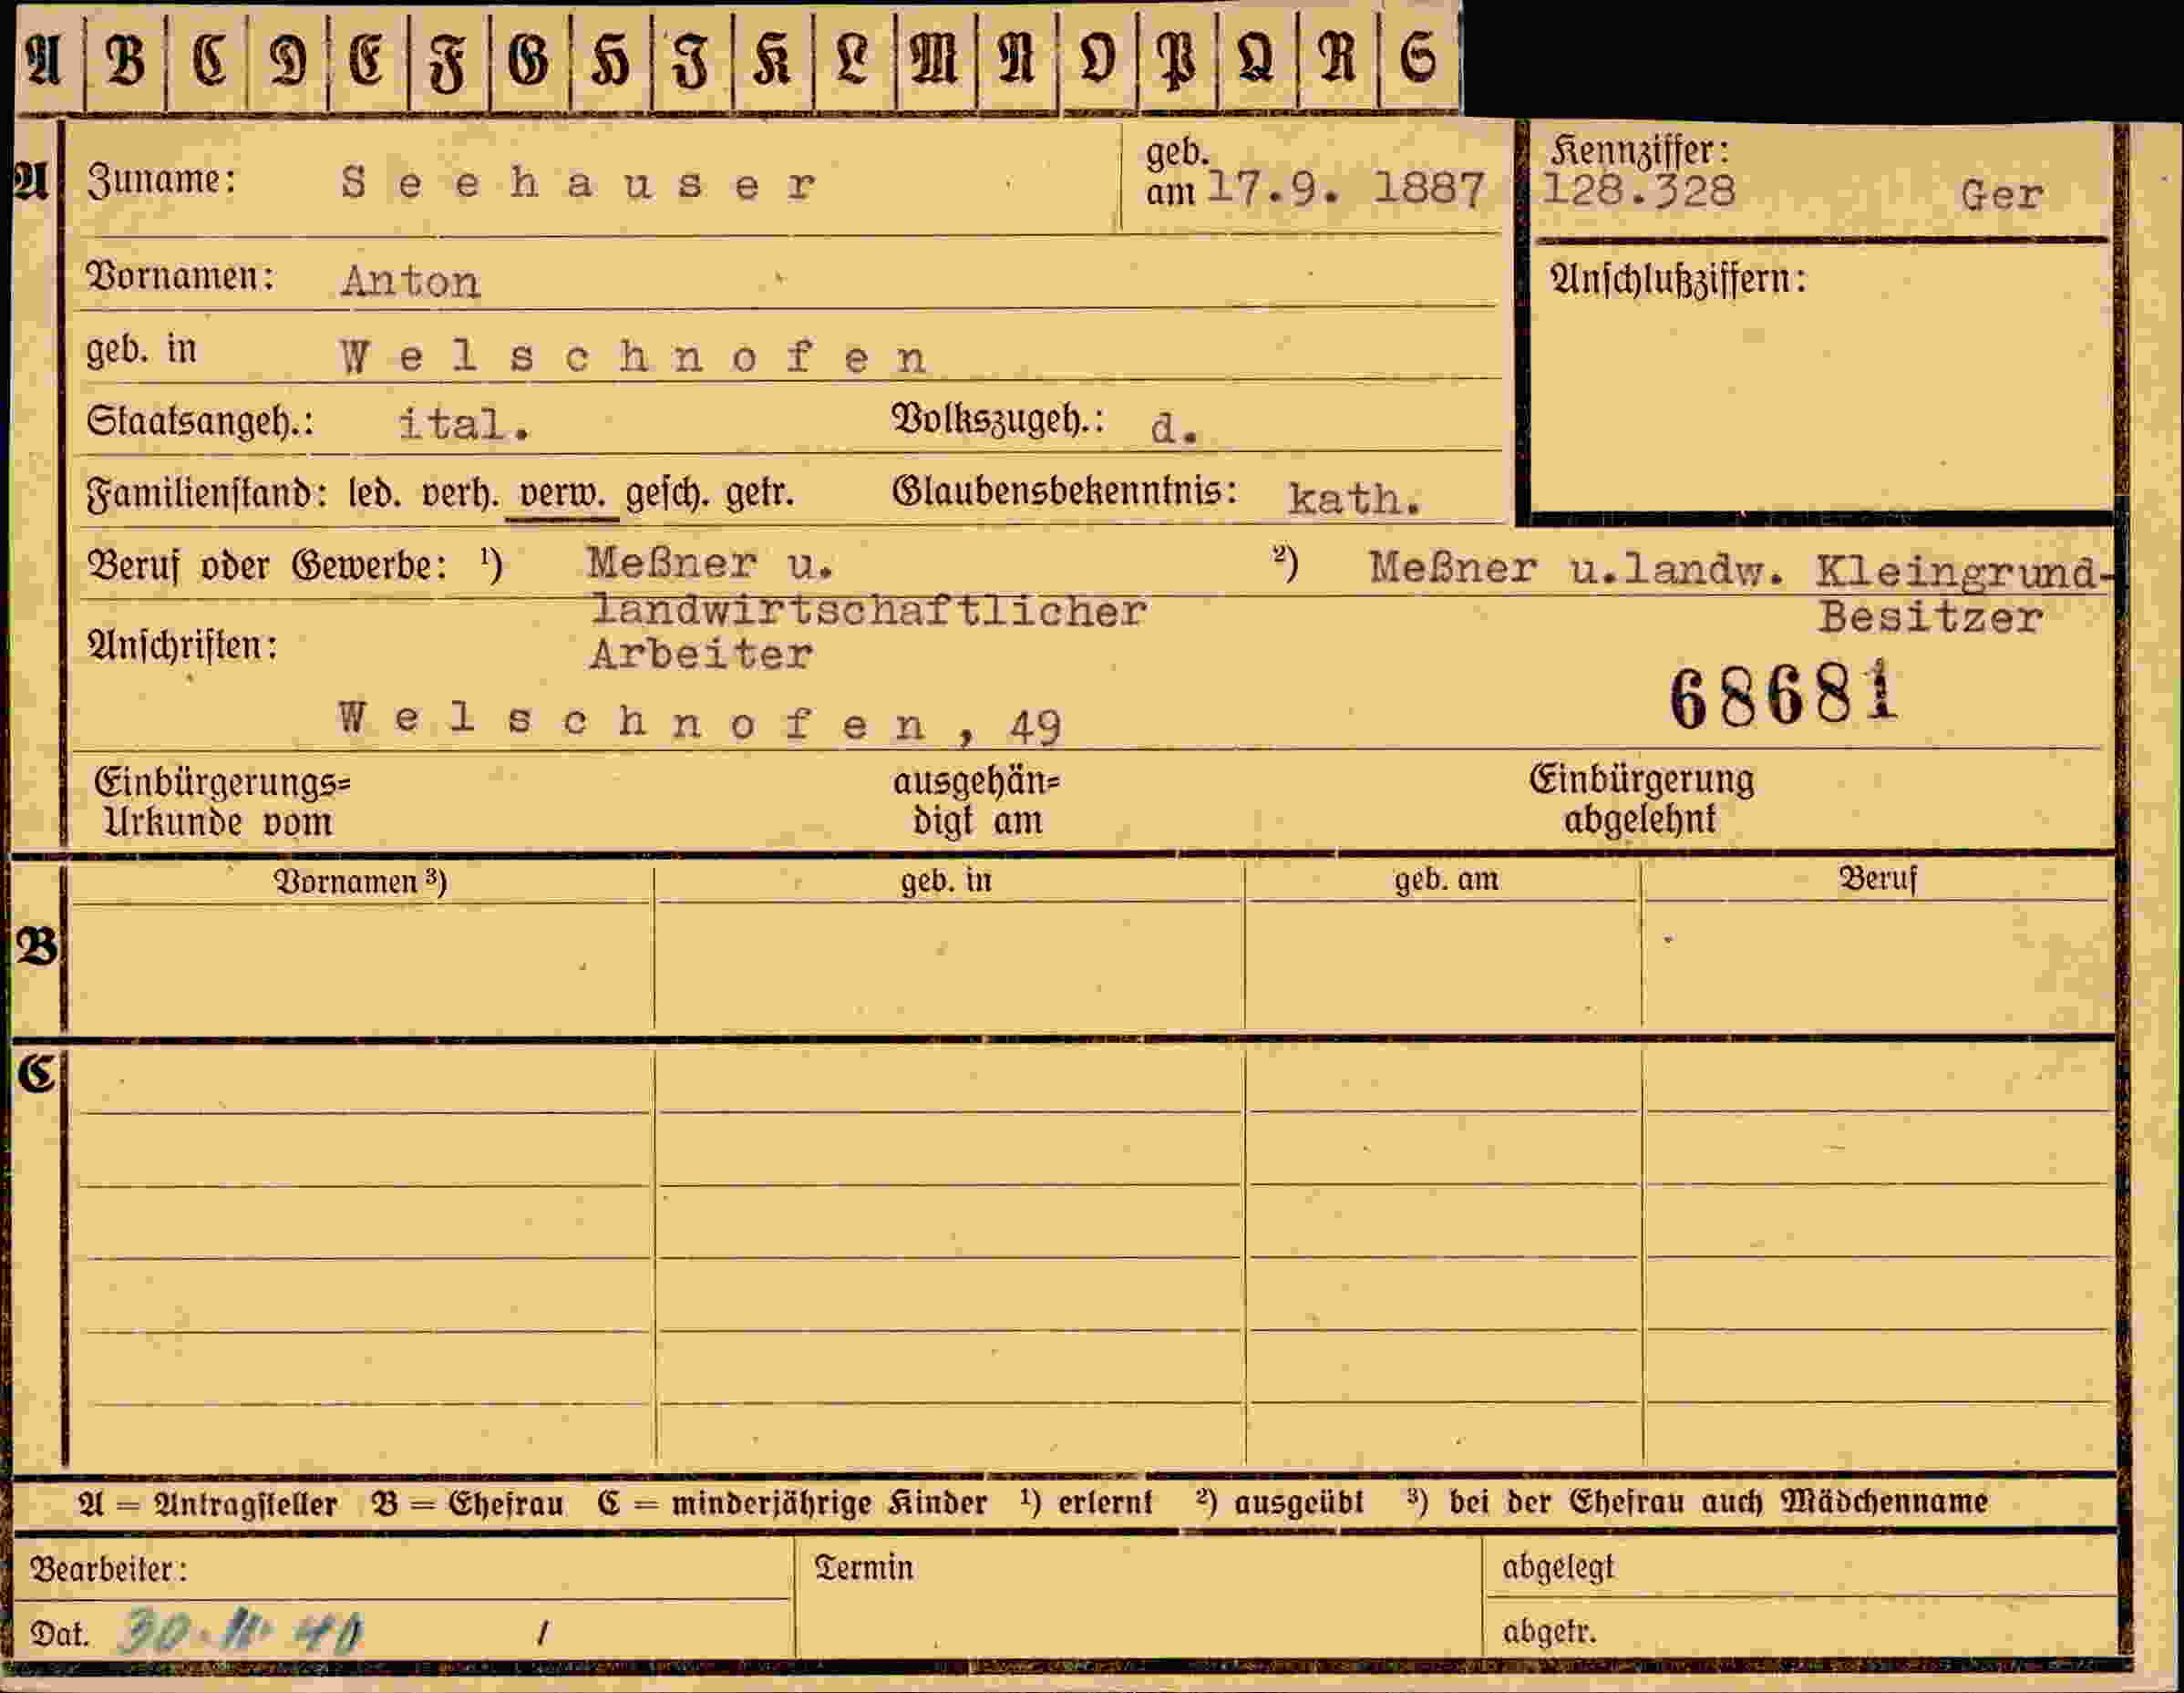 A B C D E F G H I K L M N O P Q R S
A Zuname: Seehauser geb. am 17.9. 1887 Kennziffer: 128.328 Ger
Vornamen: Anton Anschlußziffern:
geb. in Welschnofen
Staatsangeh.: ital. Volkszugeh.: d.
Familienstand: led. verh. verw. gesch. getr. Glaubensbekenntnis: kath.
Beruf oder Gewerbe: ¹) Meßner u. ²) Meßner u.landw. Kleingrund-
landwirtschaftlicher Besitzer
Anschriften: Arbeiter
68681
Welschnofen, 49
Einbürgerungs= ausgehän= Einbürgerung
Urkunde vom digt am abgelehnt
Vornamen ³) geb. in geb. am Beruf
B
C
A = Antragsteller B = Ehefrau C = minderjährige Kinder ¹) erlernt ²) ausgeübt ³) bei der Ehefrau auch Mädchenname
Bearbeiter: Termin abgelegt
Dat. 30. 11. 40 / abgetr.